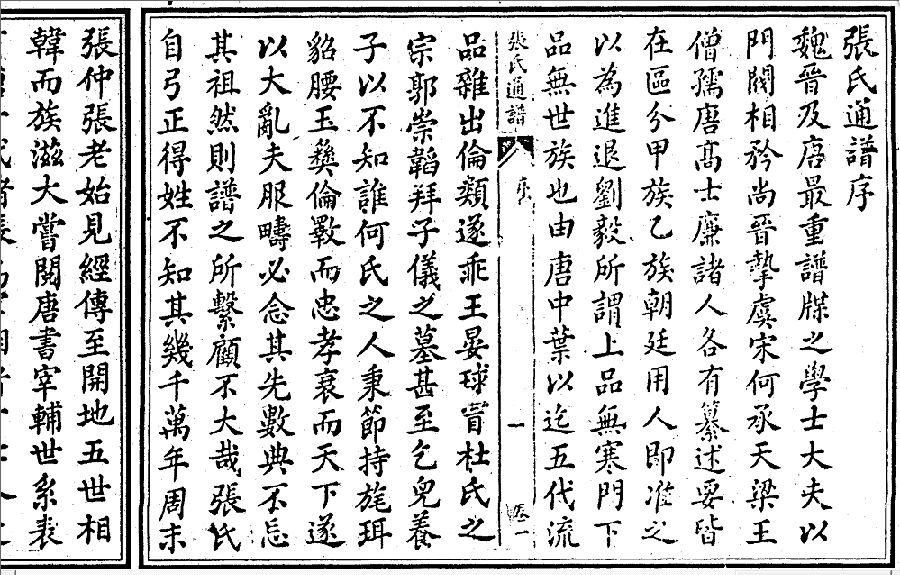 張氏通譜序
魏晉及唐最重譜牒之學士大夫以
門閥相矜尚晉摯虞宋何承天梁王
僧孺唐高士廉諸人各有纂述要皆
在區分甲族乙族朝廷用人即准之
以為進退劉毅所謂上品無寒門下
品無世族也由唐中葉以迄五代流
張氏通譜 序 一 卷一
品雜出倫類遂乖王晏球冒杜氏之
宗郭崇韜拜子儀之墓甚至乞兒養
子以不知誰何氏之人秉節持旄珥
貂腰玉彝倫斁而忠孝衰而天下遂
以大亂夫服疇必念其先數典不忘
其祖然則譜之所繫顧不大哉張氏
自弓正得姓不知其幾千萬年周末
張仲張老始見經傳至開地五世相
韓而族滋大嘗閱唐書宰輔世系表